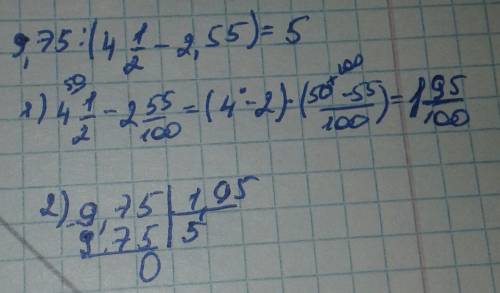 9,75:(4 1/2 - 2,55) = 5
1) 4 1/2 ⁵⁰ - 2 55/100 = (4 - 2) · (50⁺¹⁰⁰ - 55/100) = 1 95/100
2) 9,75 | 1,95
9,75 | 5
0